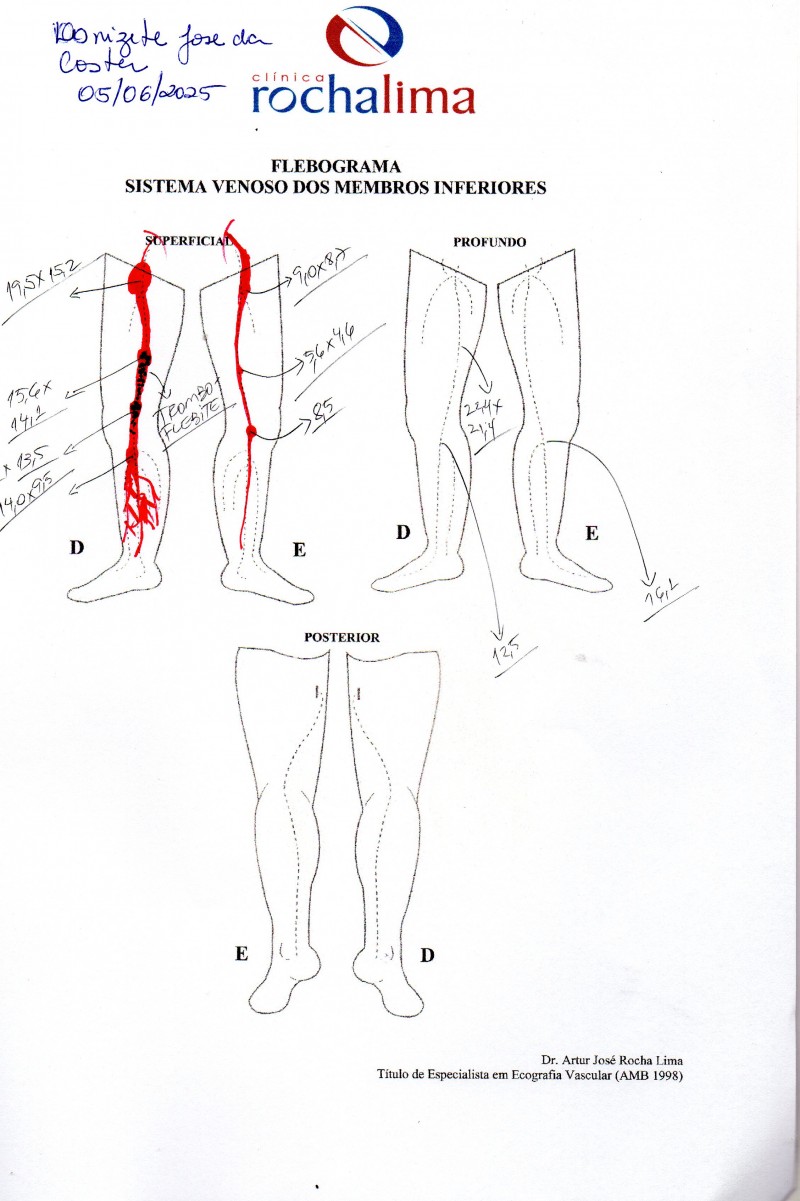 Donizete Jose da
Costa
05/06/2025
clínica
rochalima
FLEBOGRAMA
SISTEMA VENOSO DOS MEMBROS INFERIORES
SUPERFICIAL
PROFUNDO
19,5x15,2
9,0x8,7
15,6x
14,1
5,6x4,6
TROMBO-
FLEBITE
8,5
22,4x
21,4
x 13,5
14,0x9,5
D
E
D
E
16,1
12,5
POSTERIOR
E
D
Dr. Artur José Rocha Lima
Título de Especialista em Ecografia Vascular (AMB 1998)